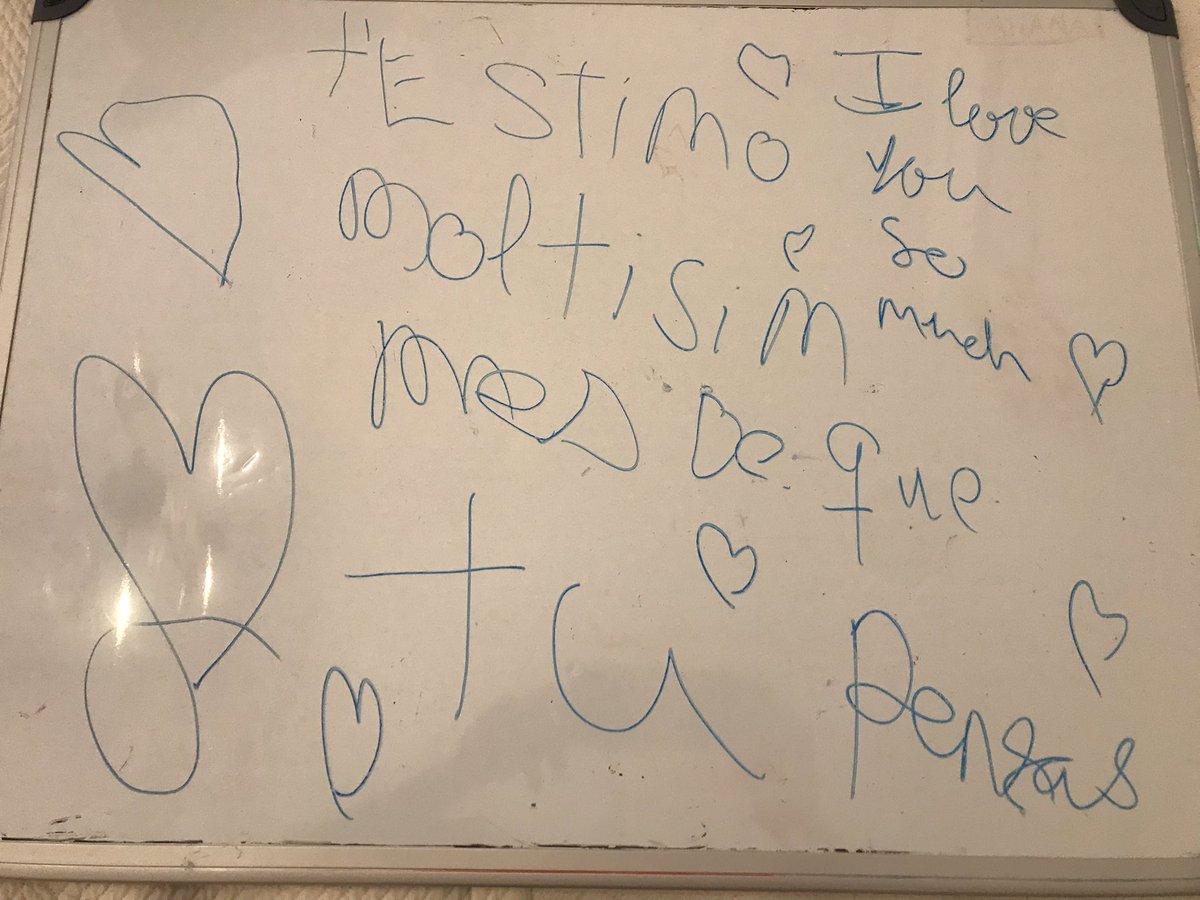 t'EStimo
moltisim
mes de que
tu pensas
I love
you
so
much